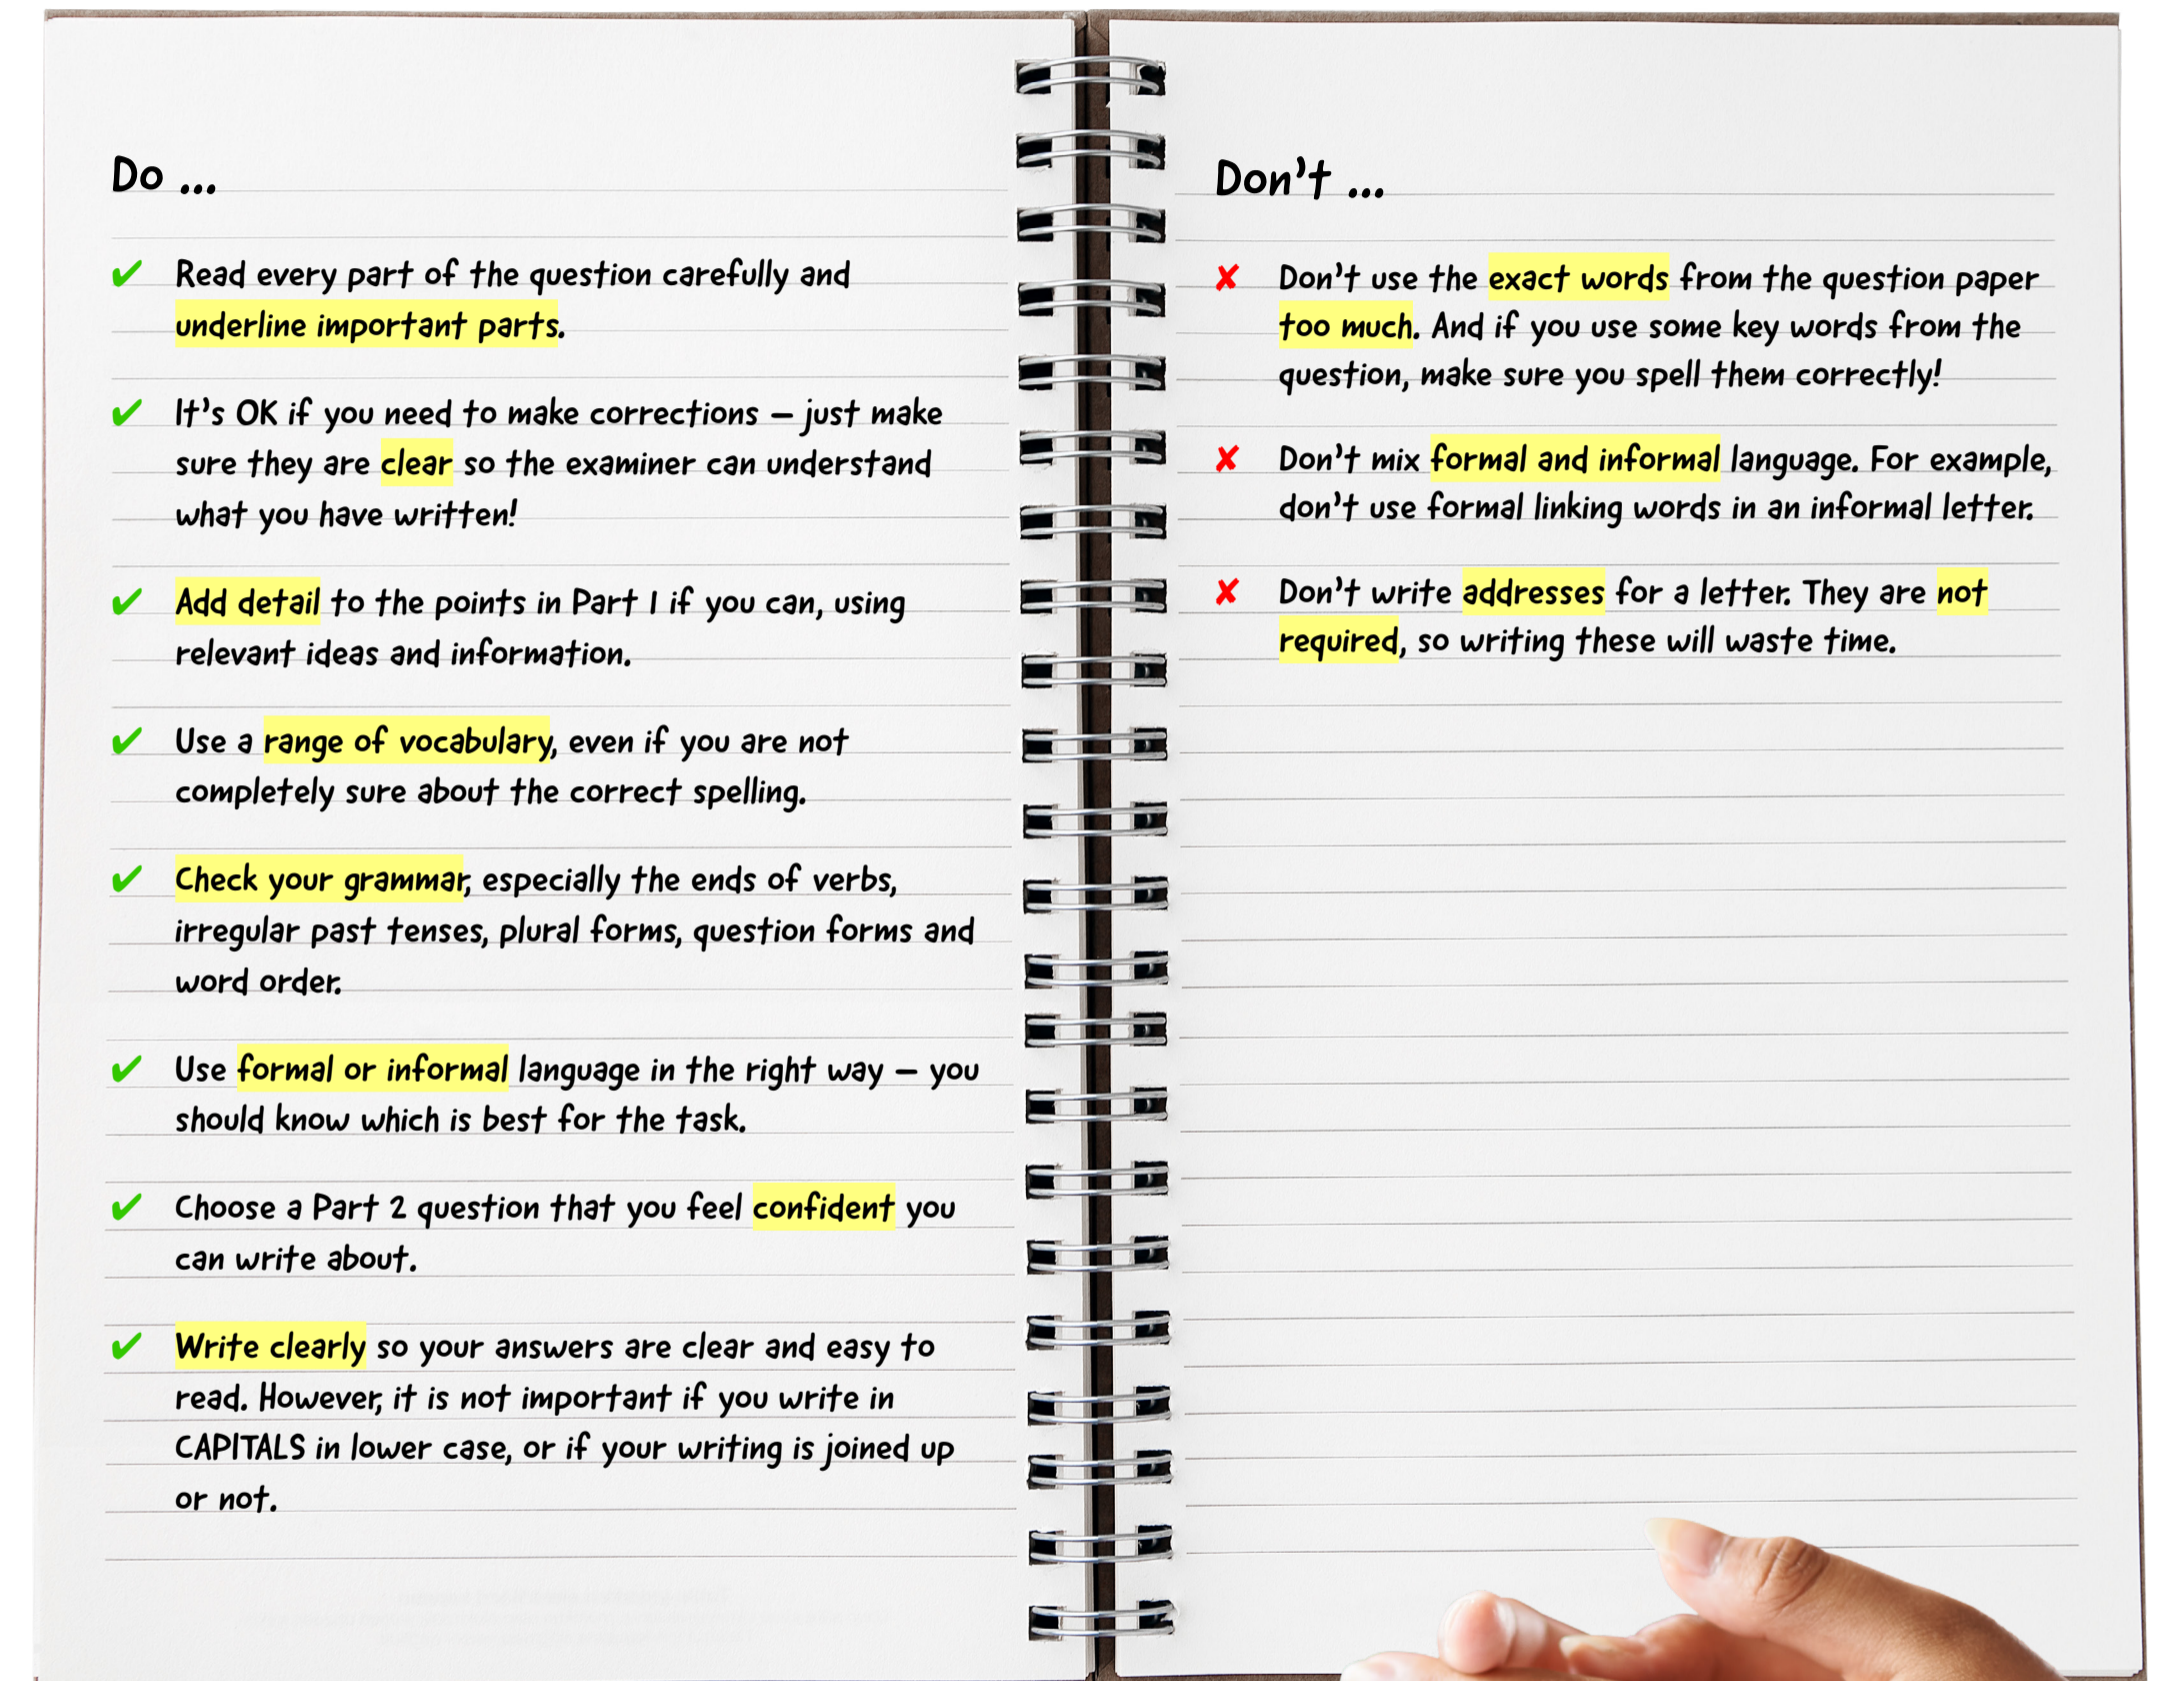 Do ...
✔ Read every part of the question carefully and
underline important parts.
✔ It's OK if you need to make corrections – just make
sure they are clear so the examiner can understand
what you have written!
✔ Add detail to the points in Part 1 if you can, using
relevant ideas and information.
✔ Use a range of vocabulary, even if you are not
completely sure about the correct spelling.
✔ Check your grammar, especially the ends of verbs,
irregular past tenses, plural forms, question forms and
word order.
✔ Use formal or informal language in the right way – you
should know which is best for the task.
✔ Choose a Part 2 question that you feel confident you
can write about.
✔ Write clearly so your answers are clear and easy to
read. However, it is not important if you write in
CAPITALS in lower case, or if your writing is joined up
or not.
Don't ...
✘ Don't use the exact words from the question paper
too much. And if you use some key words from the
question, make sure you spell them correctly!
✘ Don't mix formal and informal language. For example,
don't use formal linking words in an informal letter.
✘ Don't write addresses for a letter. They are not
required, so writing these will waste time.